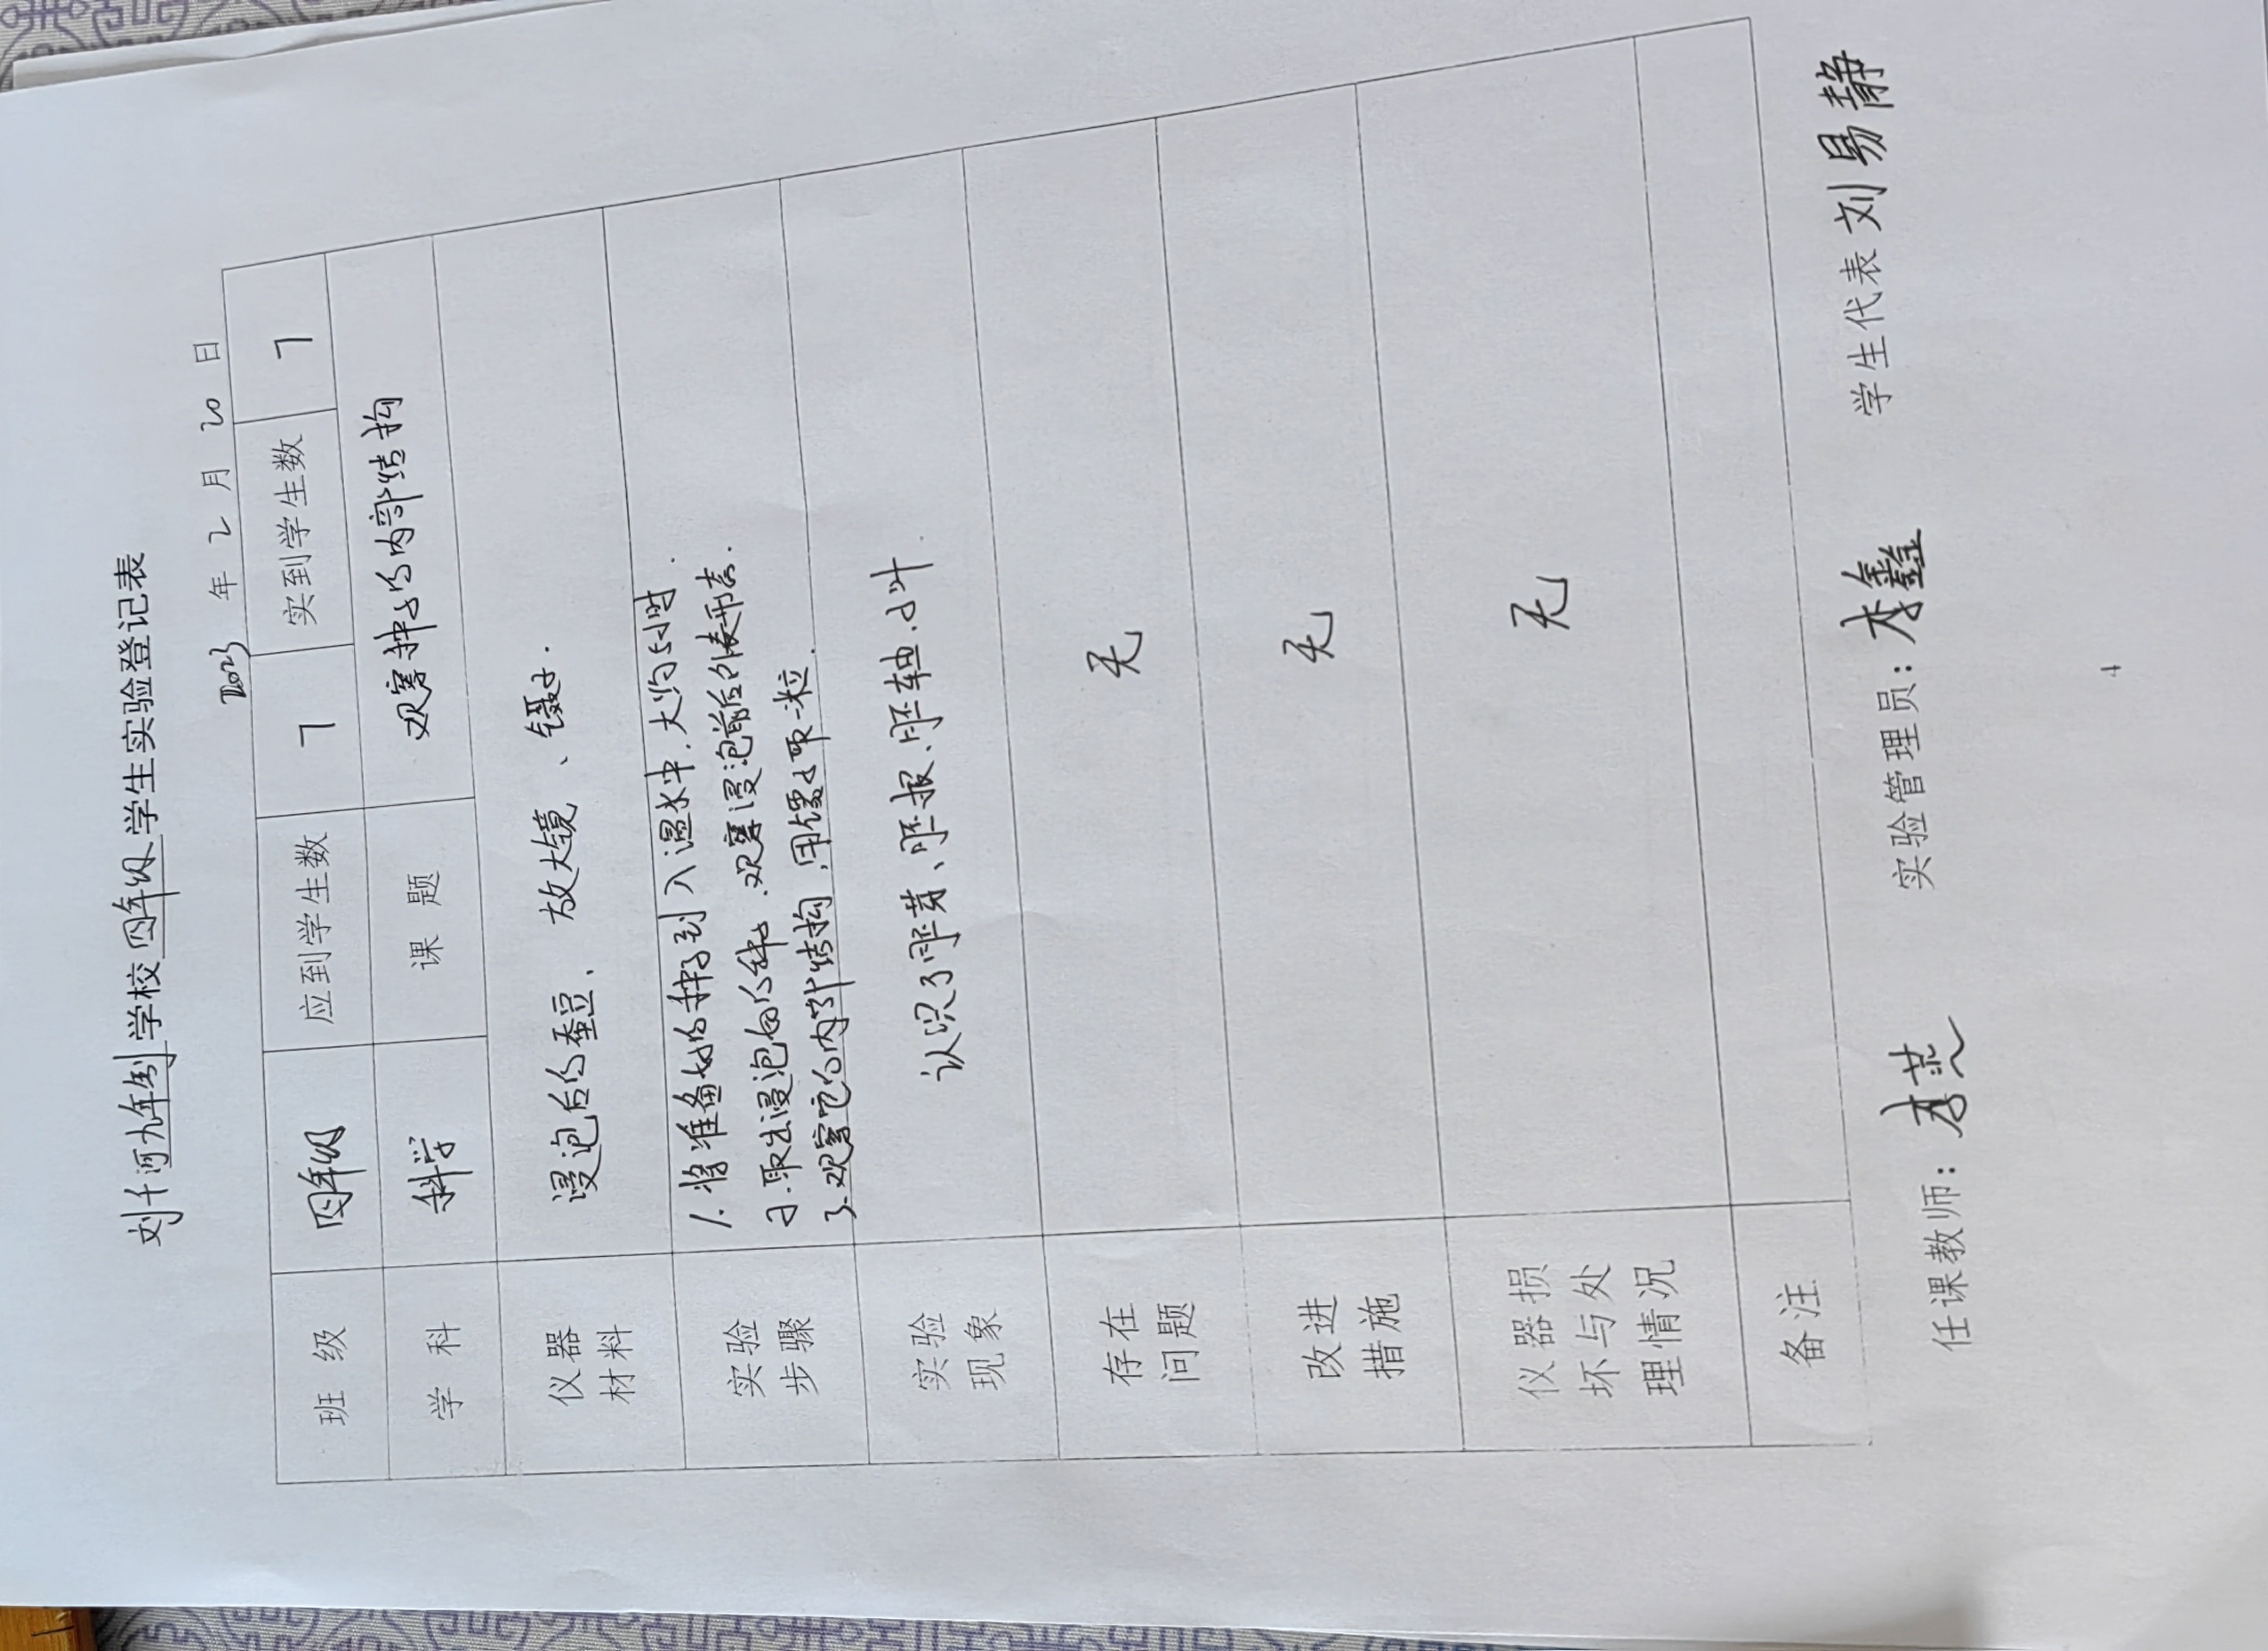 刘千河九年制学校四年级学生实验登记表
2023 年 2 月 20 日
班 级 四年级 应到学生数 7 实到学生数 7
学 科 科学 课 题 观察种子的内部结构
仪器 材料 浸泡后的蚕豆、放大镜、镊子.
实验 步骤
1.将准备好的种子到入温水中.大约5小时.
2.取出浸泡的种子.观察浸泡前后外表形态.
3.观察它的内部结构,用镊子取一粒.
实验 现象 认识了胚芽、胚根、胚轴.子叶.
存在 问题 无
改进 措施 无
仪器损 坏与处 理情况 无
备 注
任课教师: 实验管理员:李鑫 学生代表 刘易静
4